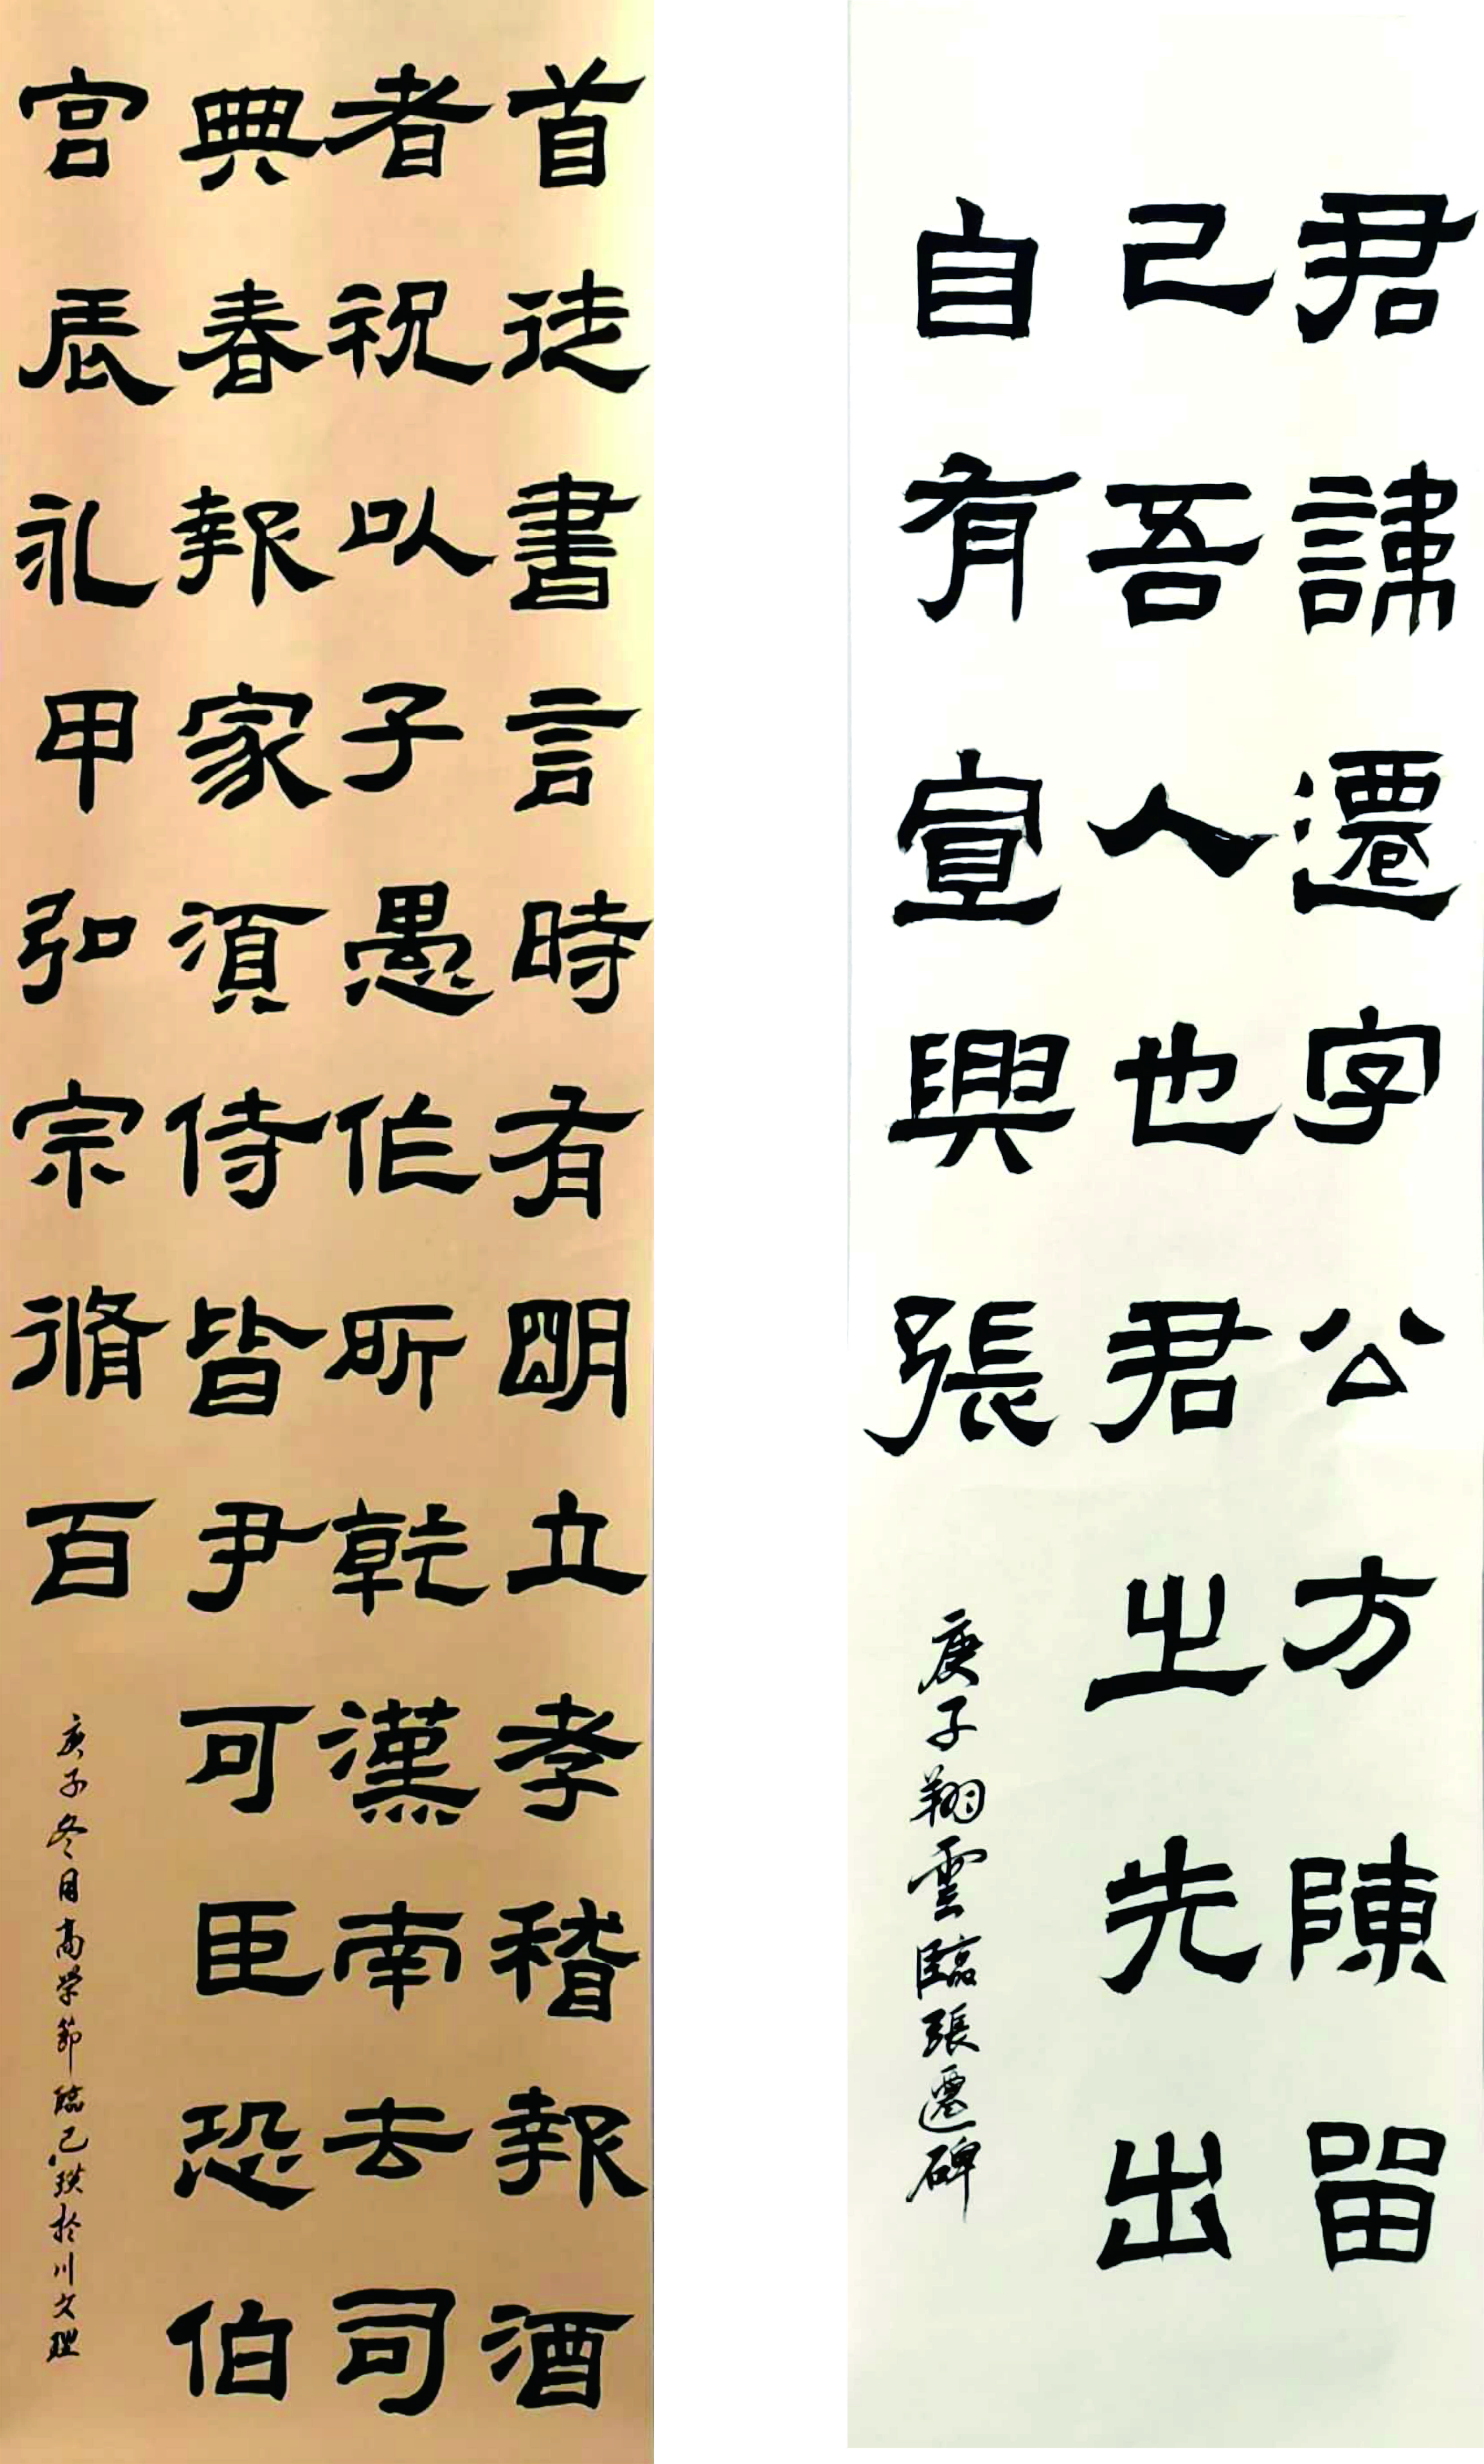 君諱遷字公方陳留
己吾人也君之先出
自有宣興張
庚子翔雲臨張遷碑
首徒書言時有朙立孝稽報酒
者祝以子愚作所乾漢南去司
典春報家須侍皆尹可臣恐伯
宮辰礼甲弘宗脩百
庚子冬月高学節臨乙瑛於川文理